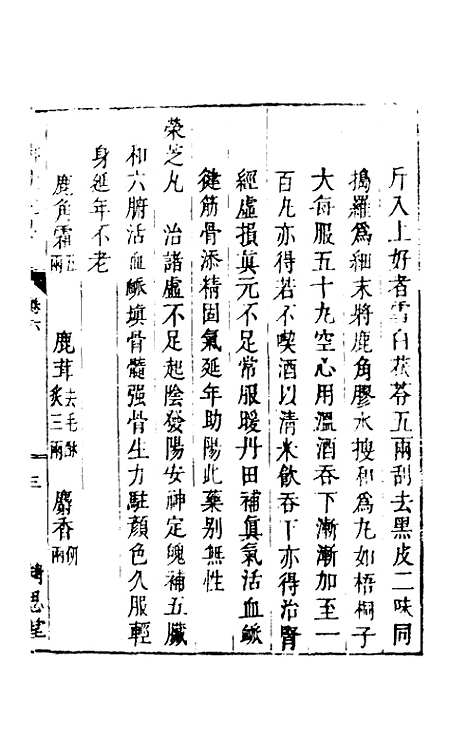 斤入上好者雪白茯苓五兩刮去黑皮二味同
搗羅爲細末將鹿角膠水搜和爲丸如梧桐子
大每服五十丸空心用溫酒吞下漸漸加至一
百丸亦得若不喫酒以清米飲吞下亦得治腎
經虛損眞元不足常服暖丹田補眞氣活血脈
健筋骨添精固氣延年助陽此藥別無性
榮芝丸　治諸虛不足起陰發陽安神定魄補五臟
和六腑活血脈塡骨髓强骨生力駐顔色久服輕
身延年不老
鹿角霜五兩　鹿茸去毛酥炙三兩　麝香兩
卷六
三
思堂